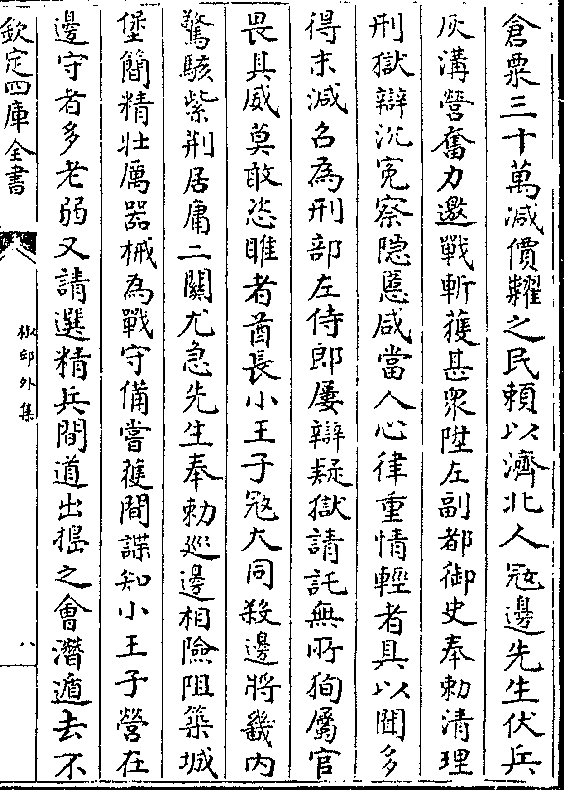 倉粟三十萬減價糶之民頼以濟北人冦邊先生伏兵
灰溝營奮力邀戰斬獲甚衆陞左副都御史奉勅清理
刑獄辯沉寃察隠慝咸當人心律重情輕者具以聞多
得末減召為刑部左侍郎屢辯疑獄請託無所狥屬官
畏其威莫敢恣睢者酋長小王子冦大同殺邊將畿内
驚駭紫荆居庸二關尤急先生奉勅巡邊相險阻築城
堡簡精壯厲器械為戰守備嘗獲間諜知小王子營在
邊守者多老弱又請選精兵間道出搗之會潛遁去不
欽定四庫全書
椒邱外集
八